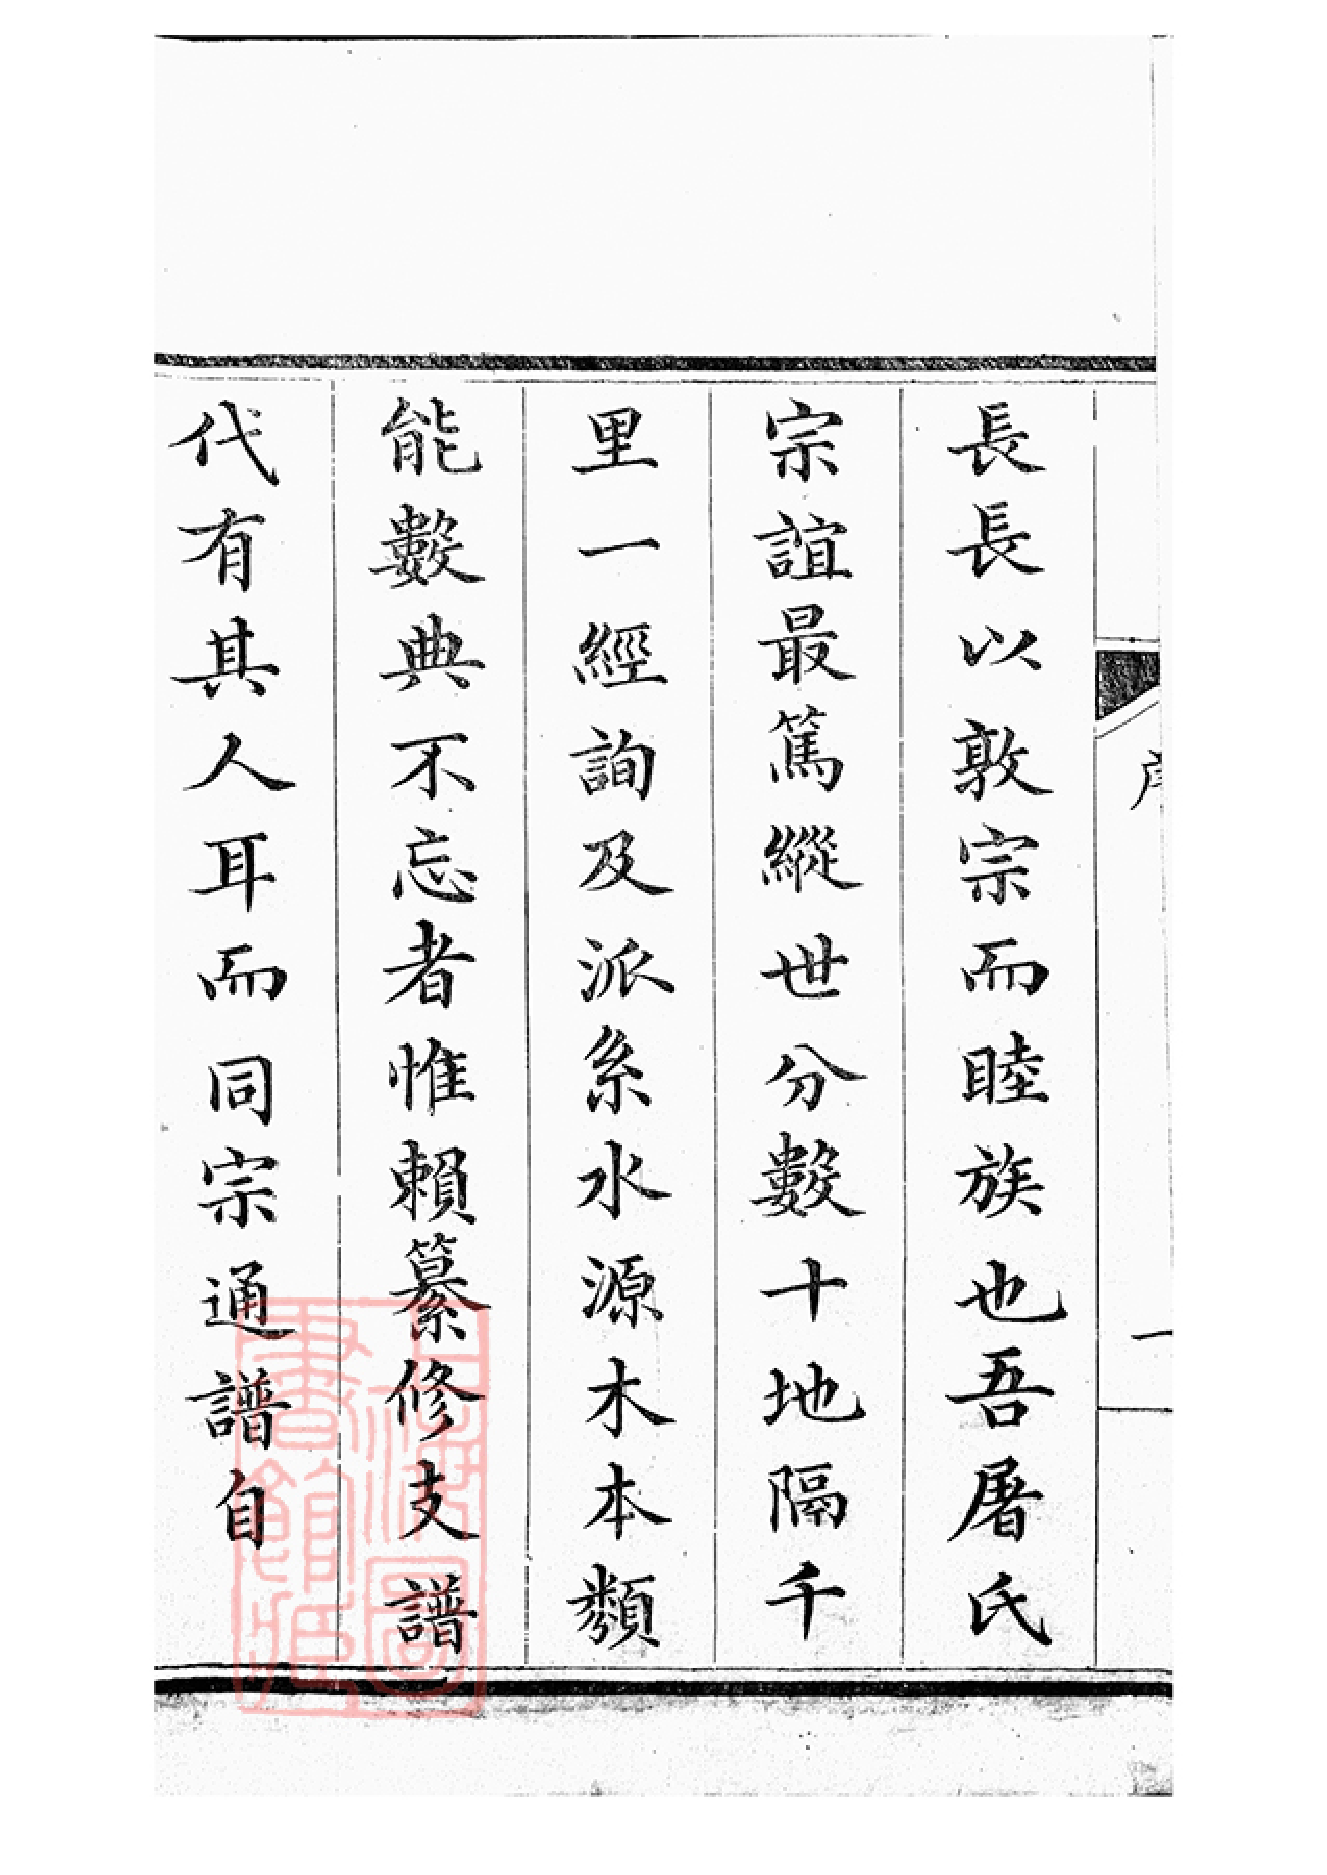 長長以敦宗而睦族也吾屠氏
宗誼最篤縱世分數十地隔千
里一經詢及派系水源木本類
能數典不忘者惟賴纂修支譜
代有其人耳而同宗通譜自
一
上海圖書館藏